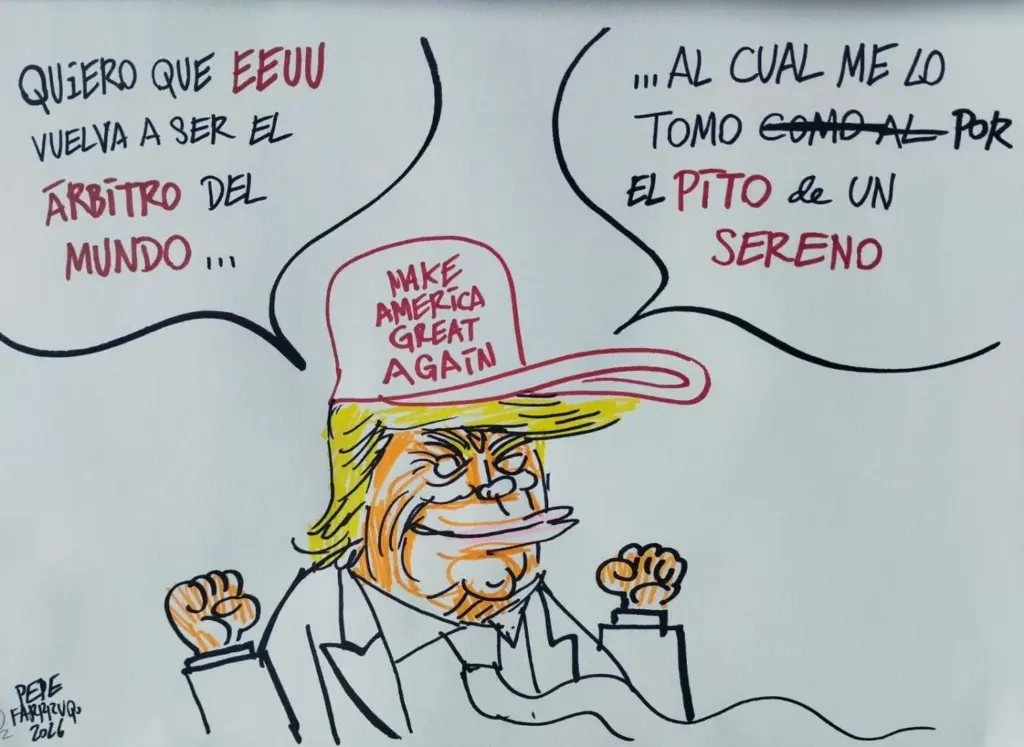 QUIERO QUE EEUU
VUELVA A SER EL
ÁRBITRO DEL
MUNDO...
...AL CUAL ME LO
TOMO COMO AL POR
EL PITO de UN
SERENO
MAKE
AMERICA
GREAT
AGAIN
PEPE
FARRUQO
2026